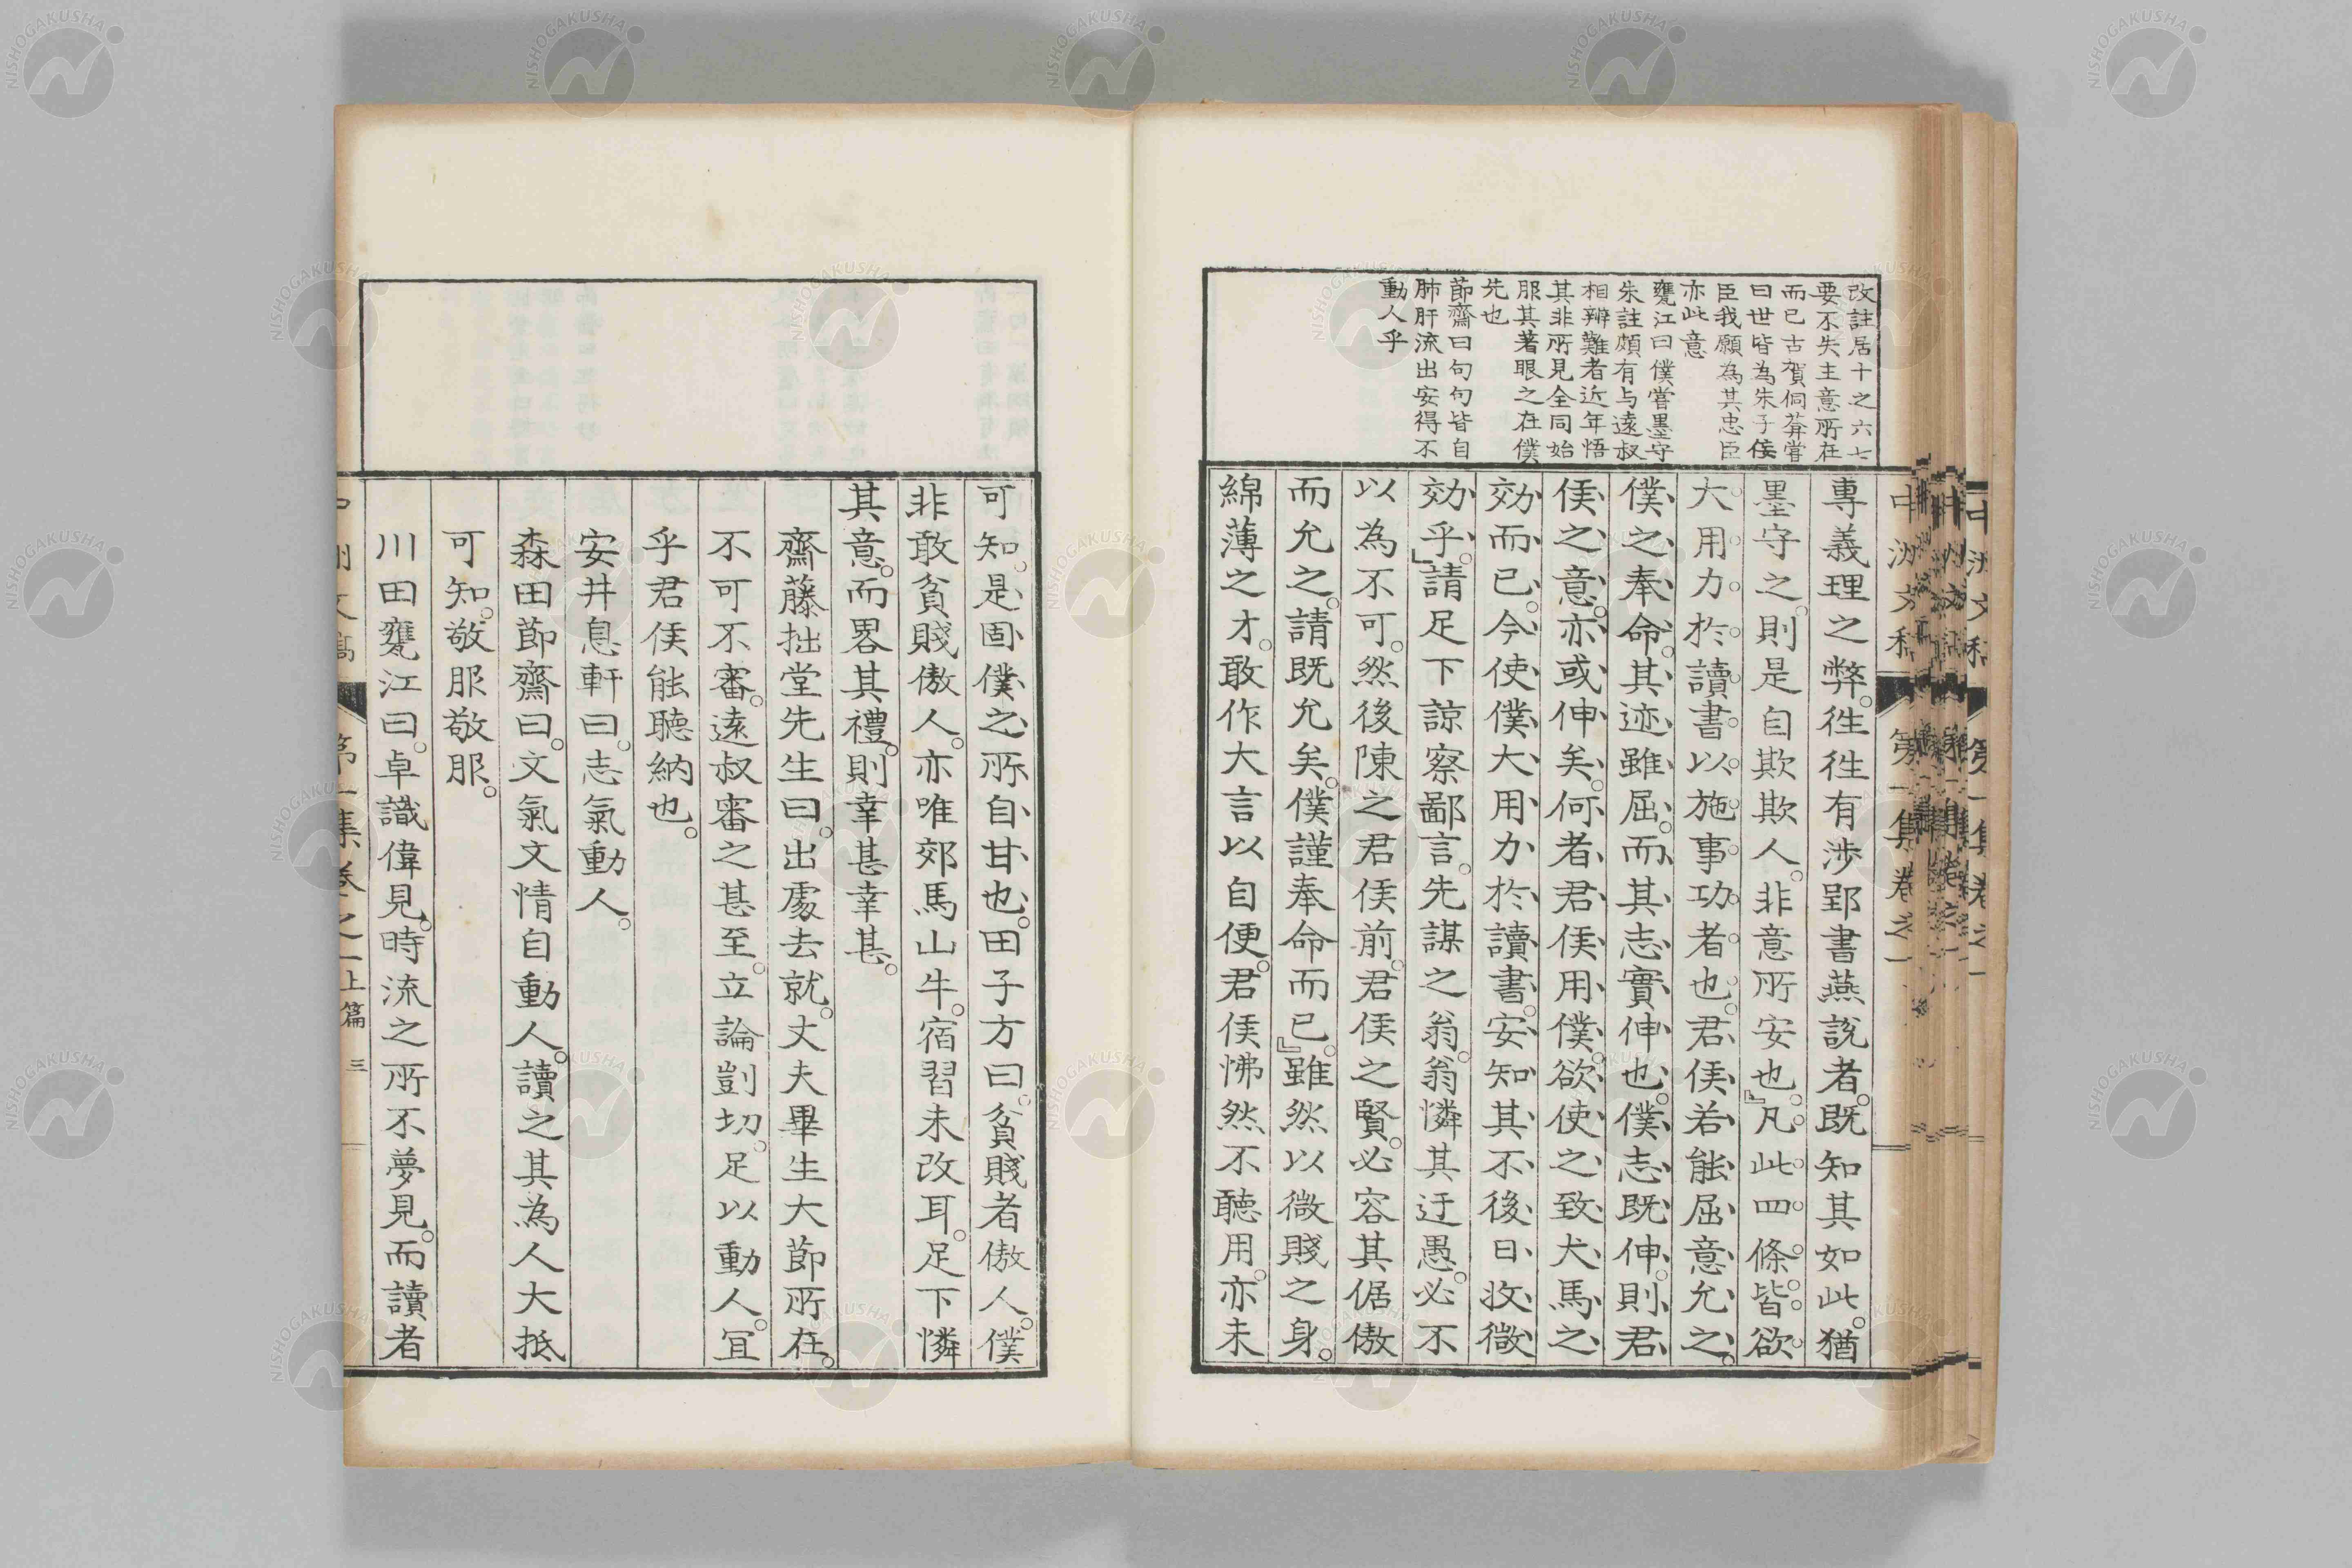 改註居十之六七
要不失主意所在
而已古賀侗菴嘗
曰世皆為朱子侫
臣我願為其忠臣
亦此意
甕江曰僕嘗墨守
朱註頗有与遠叔
相辨難者近年悟
其非所見全同始
服其著眼之在僕
先也
節齋曰句句皆自
肺肝流出安得不
動人乎
專義理之弊。徃徃有涉郢書燕說者。既知其如此。猶
墨守之。則是自欺欺人。非意所安也。』凡此四條。皆欲
大用力於讀書。以施事功者也。君侯若能屈意允之。
僕之奉命。其迹雖屈。而其志實伸也。僕志既伸。則君
侯之意。亦或伸矣。何者君侯用僕。欲使之致犬馬之
効而已。今使僕大用力於讀書。安知其不後日收徵
効乎。』請足下諒察鄙言。先謀之翁。翁憐其迂愚。必不
以為不可。然後陳之君侯前。君侯之賢。必容其倨傲
而允之。請既允矣。僕謹奉命而已。』雖然以微賤之身。
綿薄之才。敢作大言以自便。君侯怫然不聽用。亦未
可知。是固僕之所自甘也。田子方曰。貧賤者傲人。僕
非敢貧賤傲人。亦唯郊馬山牛。宿習未改耳。足下憐
其意。而畧其禮。則幸甚幸甚。
齋藤拙堂先生曰。出處去就。丈夫畢生大節所在。
不可不審。遠叔審之甚至。立論剴切。足以動人。冝
乎君侯能聽納也。
安井息軒曰。志氣動人。
森田節齋曰。文氣文情自動人。讀之其為人大抵
可知。敬服敬服。
川田甕江曰。卓識偉見。時流之所不夢見。而讀者
第一集卷之一上篇 三